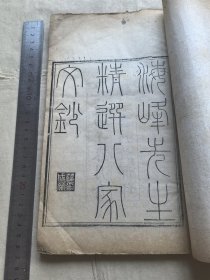 海峰先生
精選八家
文鈔